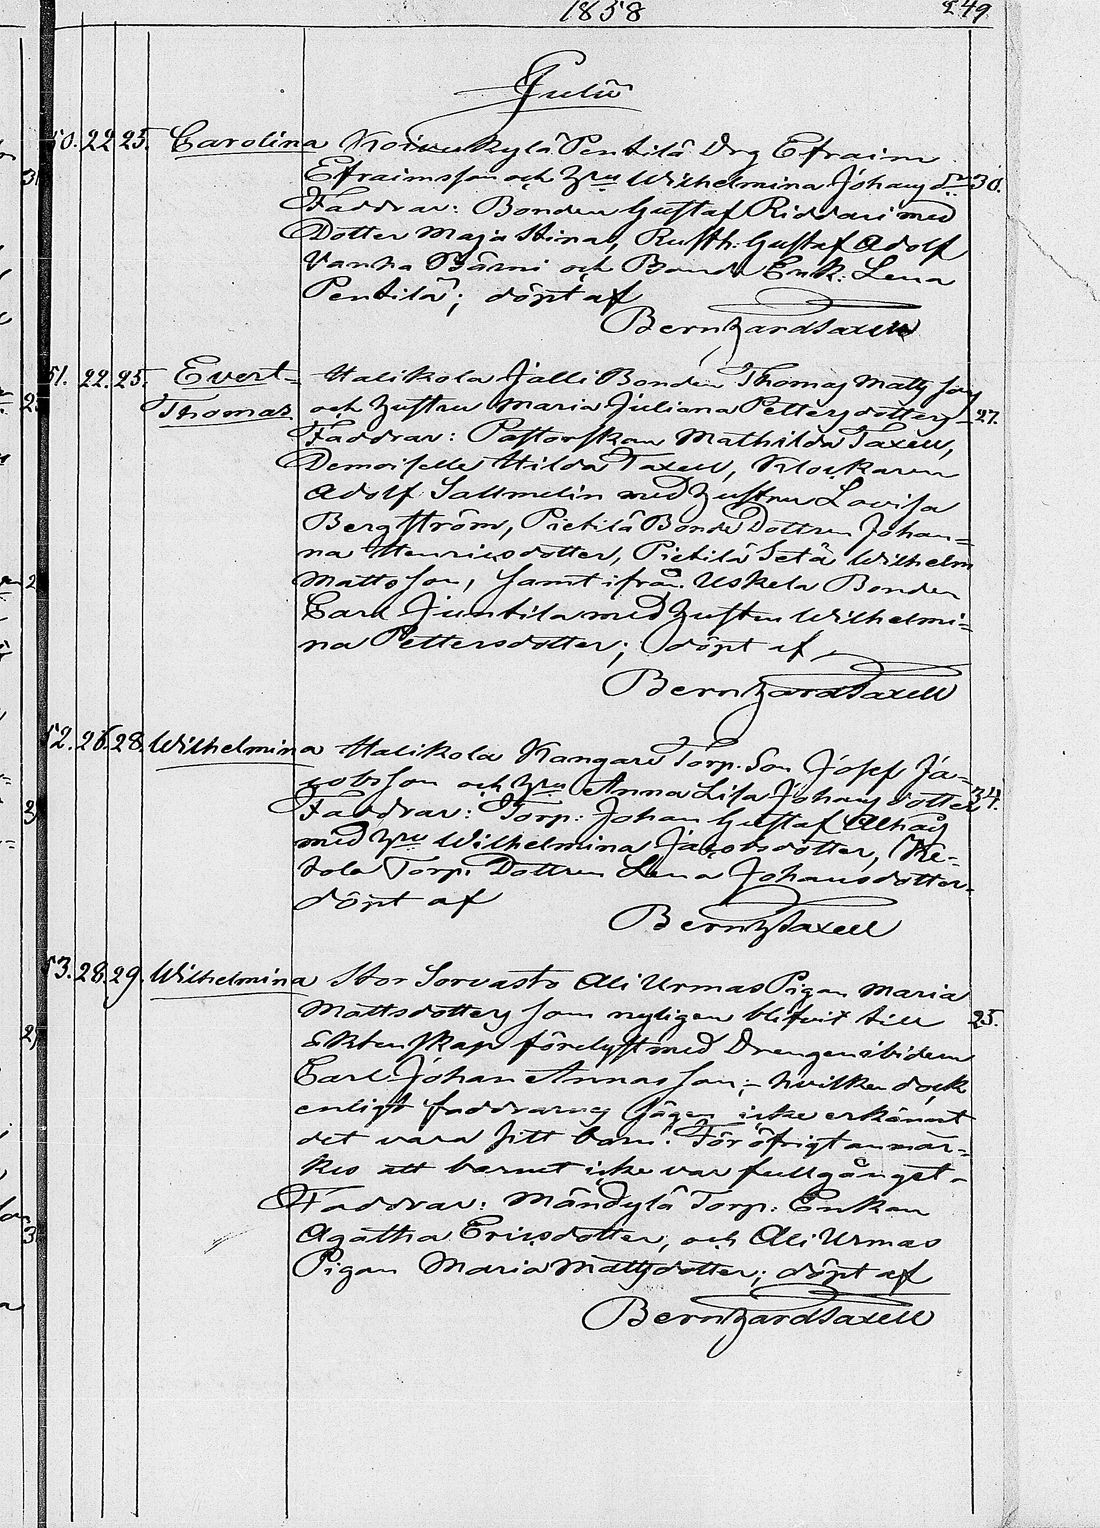 1858 249
Julii
50. 22 25. Carolina Koivukylä Pentilä Drg Efraim
Efraimsson och Hru Wilhelmina Johansdr 30.
Faddrar: Bonden Gustaf Riddari med
Dotter Maja Stina, Rusth: Gustaf Adolf
Vanha Bärni och Bonde Enk: Lena
Pentilä; döpt af
Bernhard Taxell
51. 22. 25. Evert- Halikola Jälli Bonden Thomas Mattsson
Thomas och hustru Maria Juliana Pettersdotter 27.
Faddrar: Pastorskan Mathilda Taxell,
Demoiselle Hilda Taxell, Klockaren
Adolf Sallmelin med hustru Lovisa
Bergström, Pietilä Bonde Dottren Johan=
na Henricsdotter, Pietilä Setä Wilhelm
Mattsson, samt ifrån Uskela Bonden
Carl Juntila med hustru Wilhelmi=
na Pettersdotter; döpt af
Bernhard Taxell
52. 26. 28. Wilhelmina Halikola Kangare Torp. Son Josef Ja=
cobsson och Hru Anna Lisa Johansdotter 34.
Faddrar: Torp: Johan Gustaf
med Hru Wilhelmina Jacobsdotter, Ke-
tola Torp. Dottren Lena Johansdotter.
döpt af
Bernh Taxell
53. 28. 29. Wilhelmina Stor Sorvasto Ali Urmas Pigan Maria
Mattsdotter som nyligen blifvit till 25.
äktenskap förelyst med Drengen ibidem
Carl Johan Annasson; hvilken dock
enligt faddrarnes sägen icke erkännt
det vara sitt barn. För öfrigt anmär-
kes att barnet icke var fullgånget.
Faddrar: Mändylä Torp: Enkan
Agatha Ericsdotter, och Ali Urmas
Pigan Maria Mattsdotter; döpt af
Bernhard Taxell